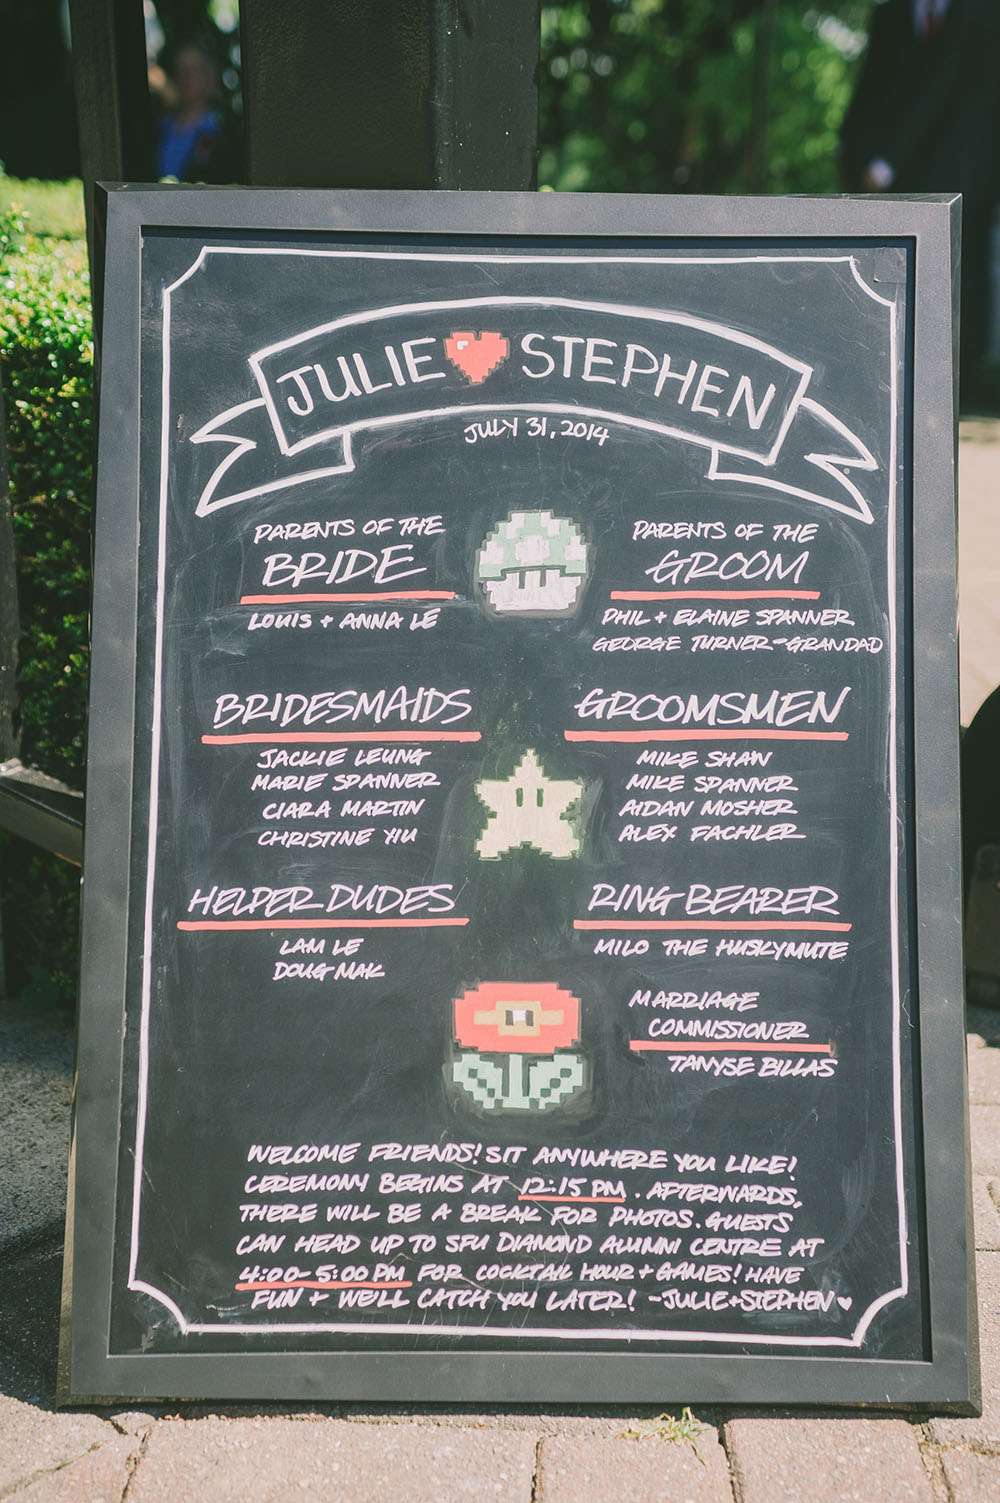 JULIE STEPHEN
JULY 31, 2014
PARENTS OF THE
BRIDE
LOUIS + ANNA LE
PARENTS OF THE
GROOM
PHIL + ELAINE SPANNER
GEORGE TURNER - GRANDAD
BRIDESMAIDS
JACKIE LEUNG
MARIE SPANNER
CIARA MARTIN
CHRISTINE YIU
GROOMSMEN
MIKE SHAW
MIKE SPANNER
AIDAN MOSHER
ALEX FACHLER
HELPER DUDES
LAM LE
DOUG MAK
RING BEARER
MILO THE HUSKYMUTE
MARRIAGE
COMMISSIONER
TANYSE BILLAS
WELCOME FRIENDS! SIT ANYWHERE YOU LIKE!
CEREMONY BEGINS AT 12:15 PM. AFTERWARDS,
THERE WILL BE A BREAK FOR PHOTOS. GUESTS
CAN HEAD UP TO SFU DIAMOND ALUMNI CENTRE AT
4:00-5:00 PM FOR COCKTAIL HOUR + GAMES! HAVE
FUN + WE'LL CATCH YOU LATER! -JULIE+STEPHEN ♥